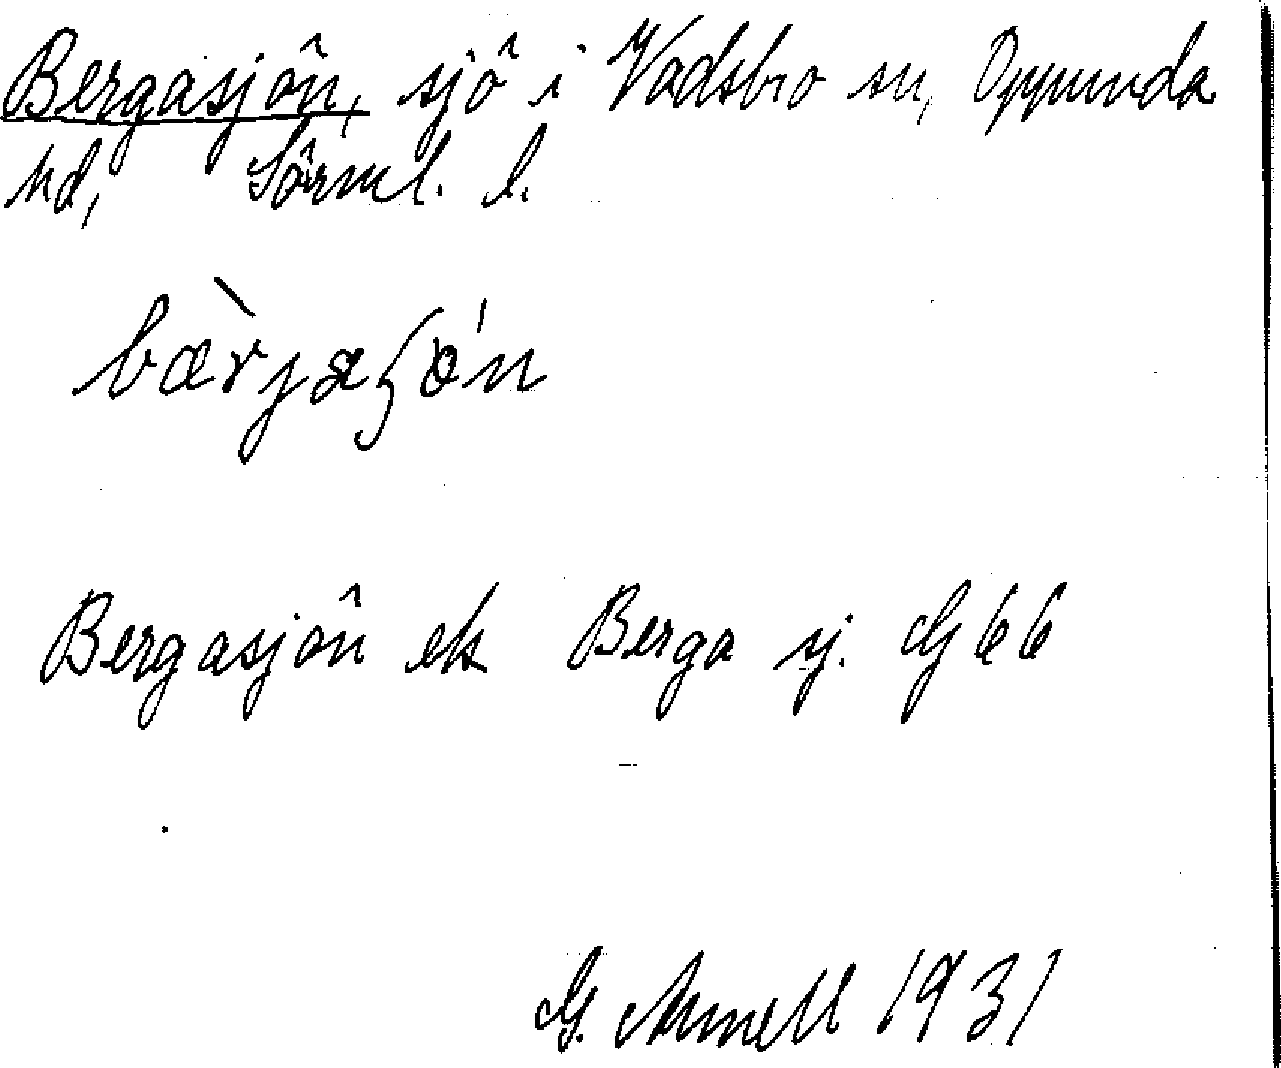 Bergasjön, sjö i Vadsbro sn, Oppunda
hd, Sörml. l.
bæ̀rjaʃǿn
Bergasjön ek Berga sj. G 66
G. Armell 1931